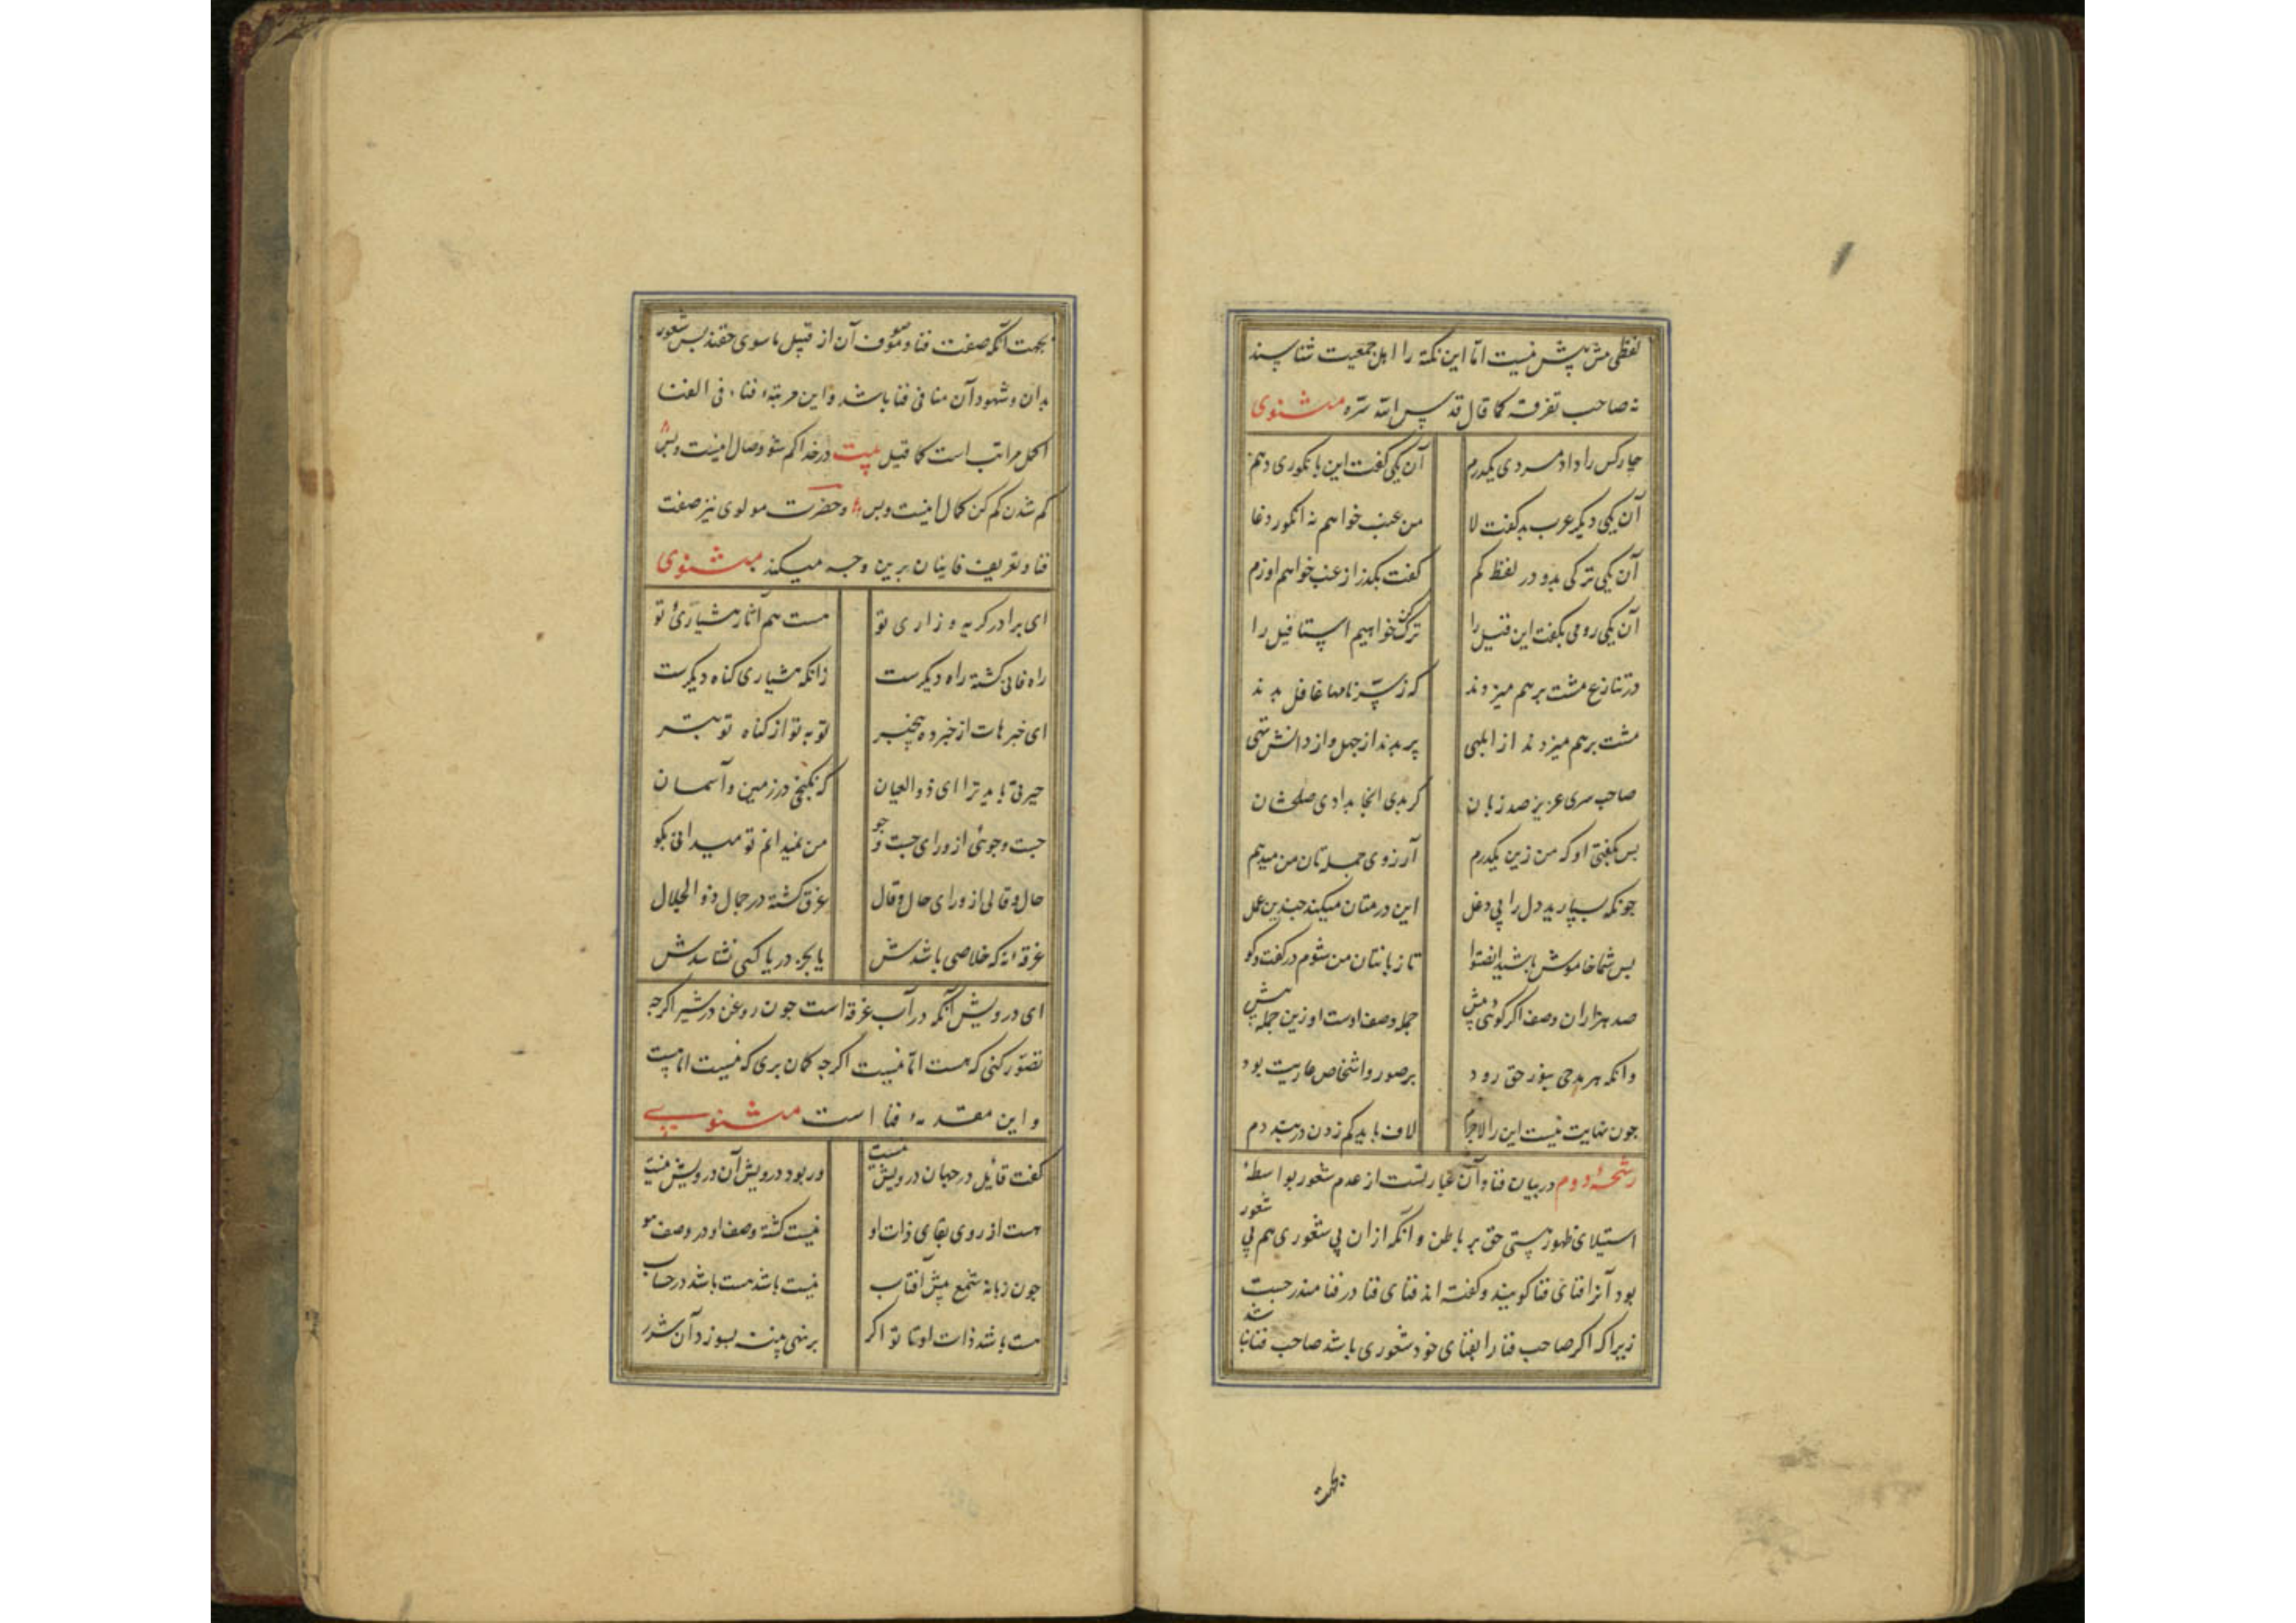 لفظی مش پیش نیست اما این نکته را اهل جمعیت شناسند
نه صاحب تفرقه کما قال قدس الله سره مثنوی
چارکس را داد مردی یکدرم آن یکی گفت این بانکوری دهم
آن یکی دیکر عرب بد کفت لا من عنب خواهم نه انکور دغا
آن یکی ترکی بدو در لفظ کم کفت بکذر از عنب خواهم اوزم
آن یکی رومی بکفت این قیل را ترک کن خواهیم استافیل را
در تنازع مشت بر هم میزدند که ز سر نامها غافل بدند
مشت بر هم میزدند از ابلهی پر بدند از جهل و از دانش تهی
صاحب سری عزیز صد زبان کر بدی انجا بدادی صلحشان
بس بکفتی او که من زین یکدرم آرزوی جمله تان من میدهم
جونکه بسپارید دل را بی دغل این درمتان میکند جندین عمل
بس شما خاموش باشید انصتوا تا زبانتان من شوم در کفت و کو
صد هزاران وصف اکر کوئی و بیش جمله وصف اوست او زین جمله پیش
وانکه هر مدحی بنور حق رود بر صور و اشخاص عاریت بود
جون نهایت نیست این را لاجرم لاف باید کم زدن در بند دم
رشحهٔ دوم در بیان فنا و آن عبارتست از عدم شعور بواسطهٔ
استیلای ظهور هستی حق بر باطن و آنکه ازان بی شعوری هم بی شعور
بود آنرا فنای فنا کویند و کفته اند فنای فنا در فنا مندرجست
زیرا که اکر صاحب فنا را بفنای خود شعوری باشد صاحب فنا نباشد
بجهت
بجهت آنکه صفت فنا و موصوف آن از قبیل ما سوی حقند بس شعور
بدان و شهود آن منافی فنا باشد و این مرتبهٔ فناء فی الفنا
اکمل مراتب است کما قیل بیت در خدا کم شو وصال اینست و بس
کم شدن کم کن کمال اینست و بس و حضرت مولوی نیز صفت
فنا و تعریف فانیان برین وجه میکند مثنوی
ای برادر کریه و زاری تو هست هم آثار هشیاری تو
راه فانی کشته راه دیکرست زانکه هشیاری کناه دیکرست
ای خبرهات از خبرده بیخبر توبه تو از کناه تو بتر
حیرتی باید ترا ای ذو العیان که نکنجی در زمین و آسمان
جست و جوئی از ورای جست و جو من نمیدانم تو میدانی بکو
حال و قالی از ورای حال و قال غرق کشته در جمال ذو الجلال
غرقهٔ نه که خلاصی باشدش یا بجز دریا کسی نشناسدش
ای درویش آنکه در آب غرقه است جون روغن در شیر اکرچه
تصور کنی که هست اما نیست اکرچه کمان بری که نیست اما هست
و این مقدمهٔ فنا است مثنوی
کفت قایل در جهان درویش نیست ور بود درویش آن درویش نیست
هست از روی بقای ذات او نیست کشته وصف او در وصف هو
جون زبانه شمع پیش آفتاب نیست باشد هست باشد در حساب
هست باشد ذات او تا تو اکر برنهی پنبه بسوزد آن شرر